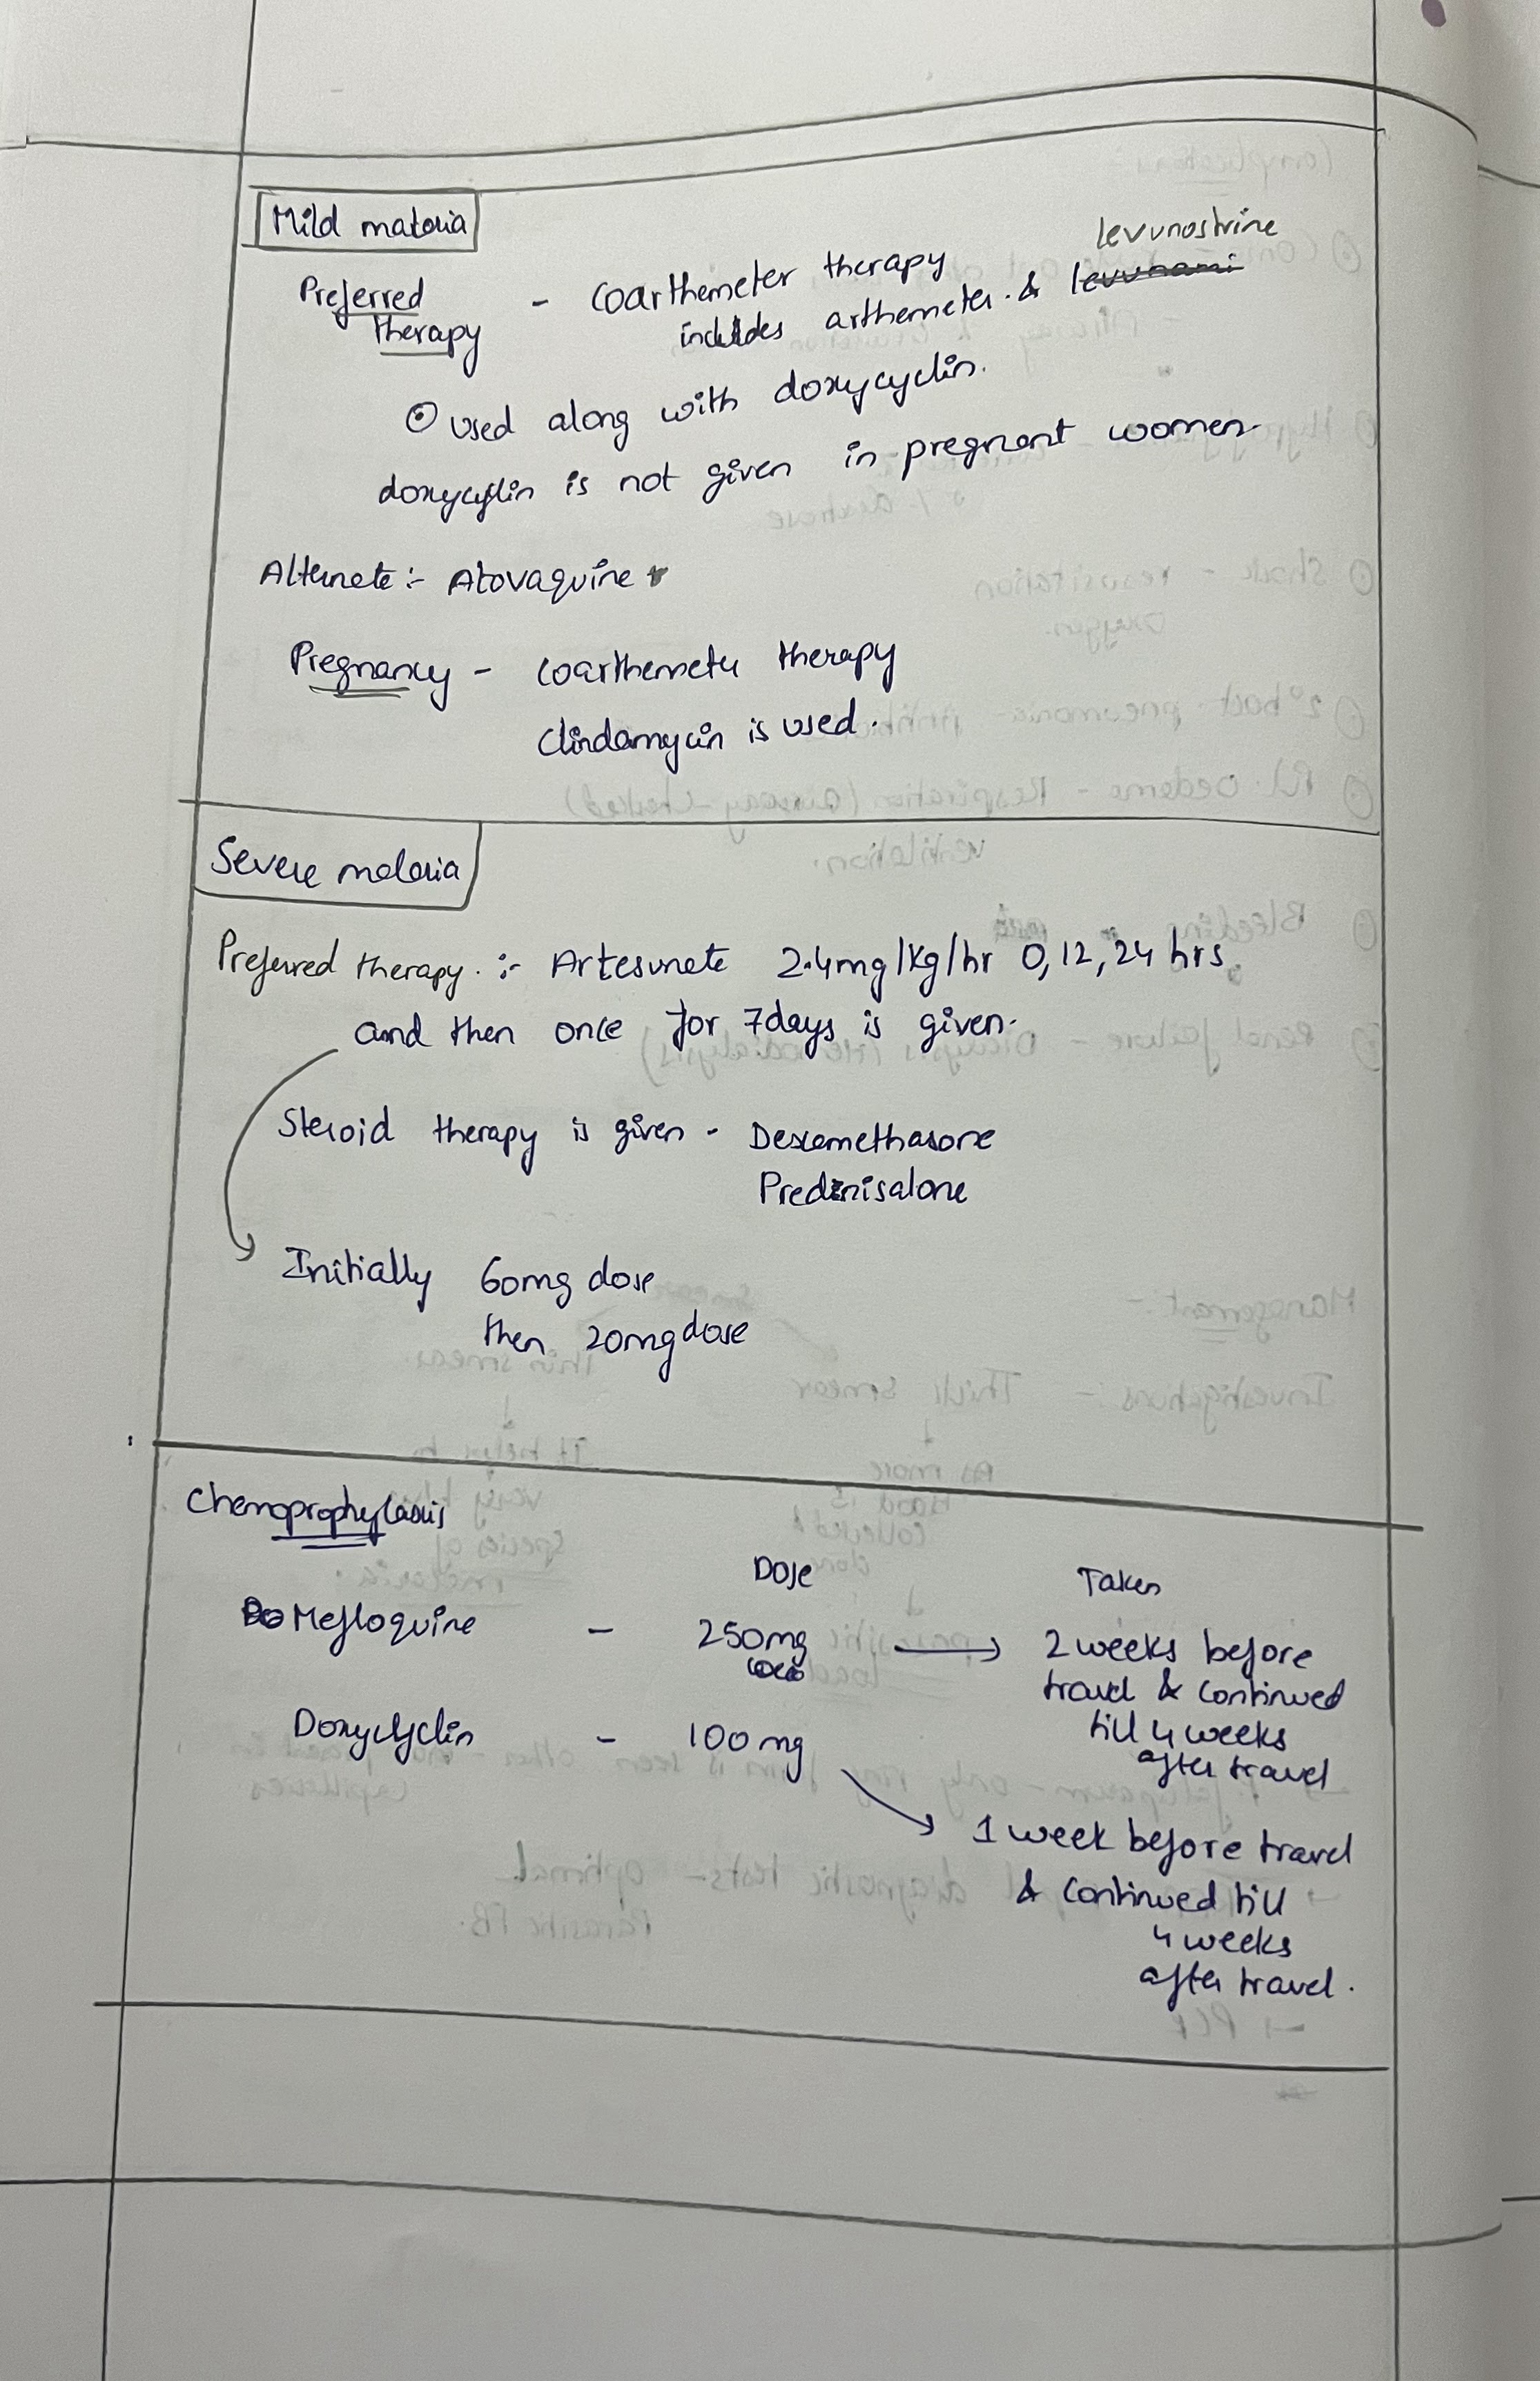 Mild malaria
levunostrine
Preferred therapy - Coarthemeter therapy
includes arthemeter & levunami
⊙ used along with doxycyclin.
doxycyclin is not given in pregnant women.
Alternate :- Atovaquine
Pregnancy - Coarthemeter therapy
Clindamycin is used.
Severe malaria
Preferred therapy :- Artesunate 2.4mg/kg/hr 0,12,24 hrs
and then once for 7days is given.
Steroid therapy is given - Dexamethasone
Prednisalone
Initially 60mg dose
then 20mg dose
Chemoprophylaxis
Dose Taken
Mefloquine - 250mg → 2 weeks before
travel & continued
till 4 weeks
after travel
Doxycyclin - 100mg
1 week before travel
& continued till
4 weeks
after travel.